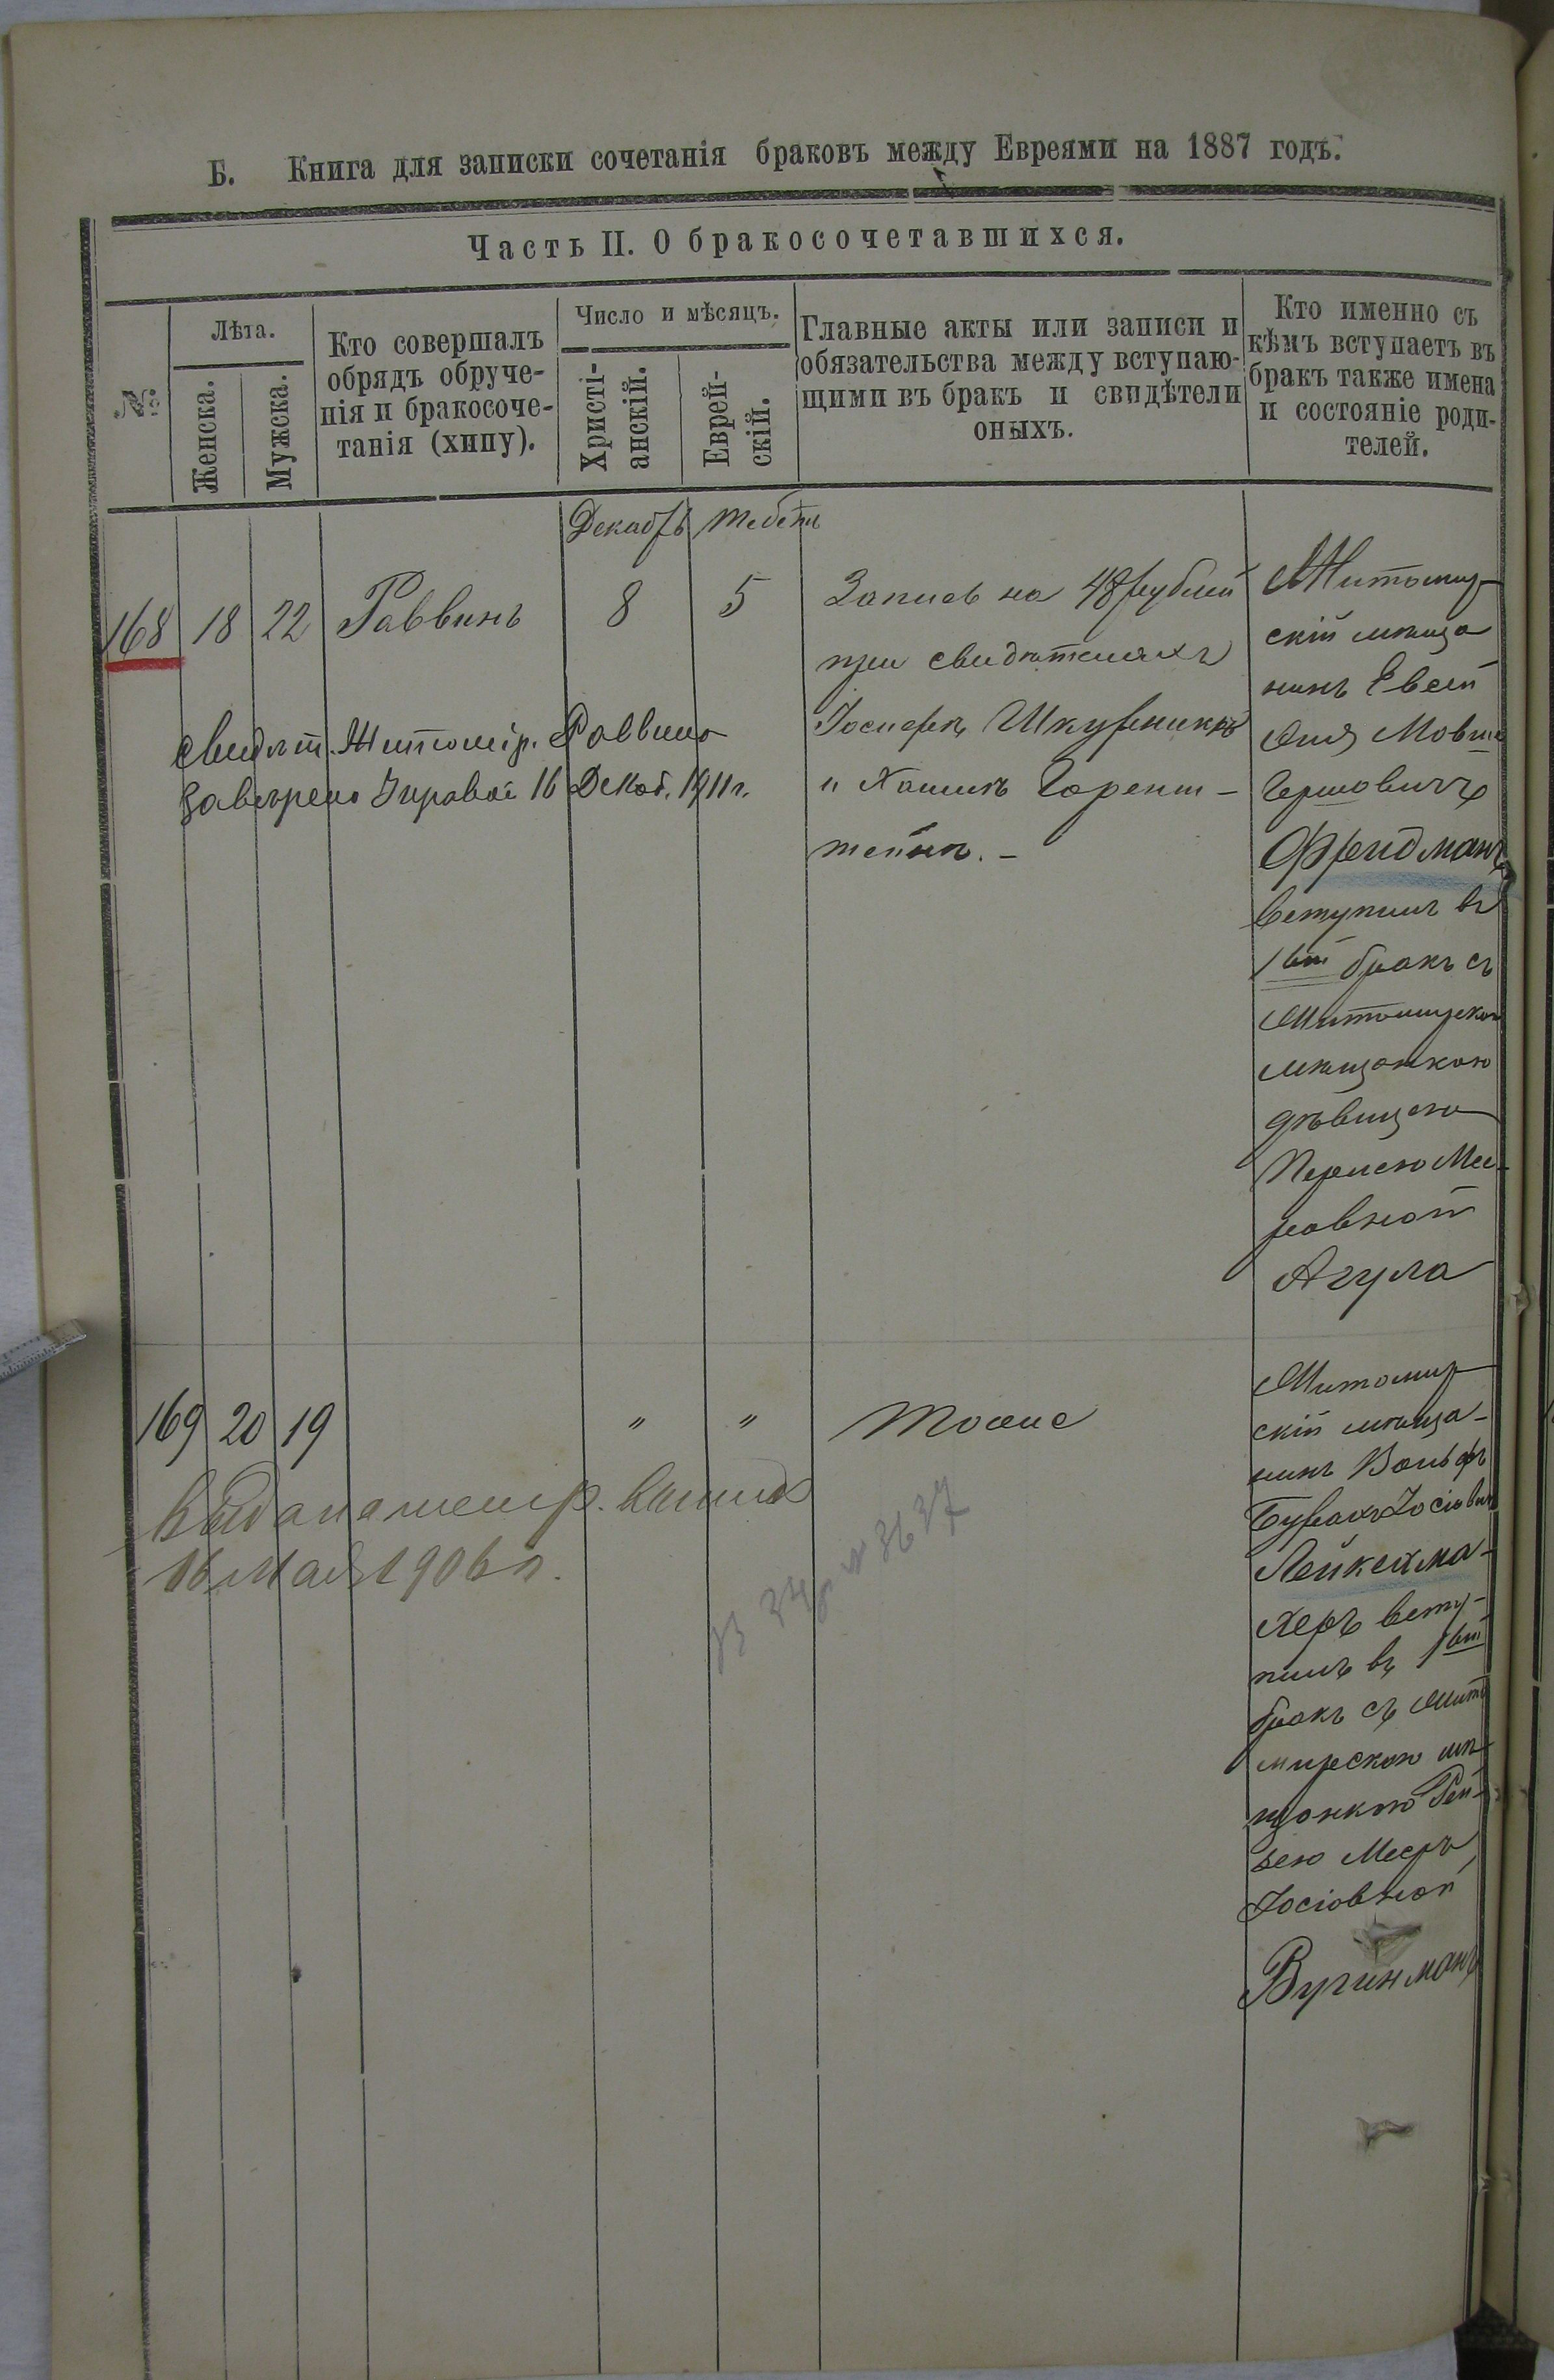 Б. Книга для записки сочетанія браковъ между Евреями на 1887 годъ.
Часть II. О бракосочетавшихся.
№
Лѣта.
Женска.
Мужска.
Кто совершалъ
обрядъ обруче-
нія и бракосоче-
танія (хипу).
Число и мѣсяцъ.
Христі-
анскій.
Еврей-
скій.
Главные акты или записи и
обязательства между вступаю-
щими въ бракъ и свидѣтели
оныхъ.
Кто именно съ
кѣмъ вступаетъ въ
бракъ также имена
и состояніе роди-
телей.
Декабрь Тебетъ
168 18 22 Раввинъ 8 5
Запись на 48 рублей
при свидѣтеляхъ
Іосифѣ Шкурникѣ
и Хаимѣ Горенш-
тейнѣ. -
Житомир-
скій мѣща
нинъ
Мовша
Гершовичъ
Фридманъ
вступилъ въ
1вый бракъ съ
Житомирскою
мѣщанкою
дѣвицею
Перлею Ме-
ровной
Агула
Свидѣт. Житомір. Раввина
завѣрено Управой 16 Декаб. 1911 г.
169 20 19 " " Тоже
Житомир
скій мѣща-
нинъ Вольфъ
Іосіовичъ
Лейкехма-
херъ всту-
пилъ въ 1вый
бракъ съ Жито
мирскою мѣ
щанкою Рей-
зею Мееръ
Іосіовной
Вугинманъ
Выдана метр. выпись
16 Мая 1906 г.